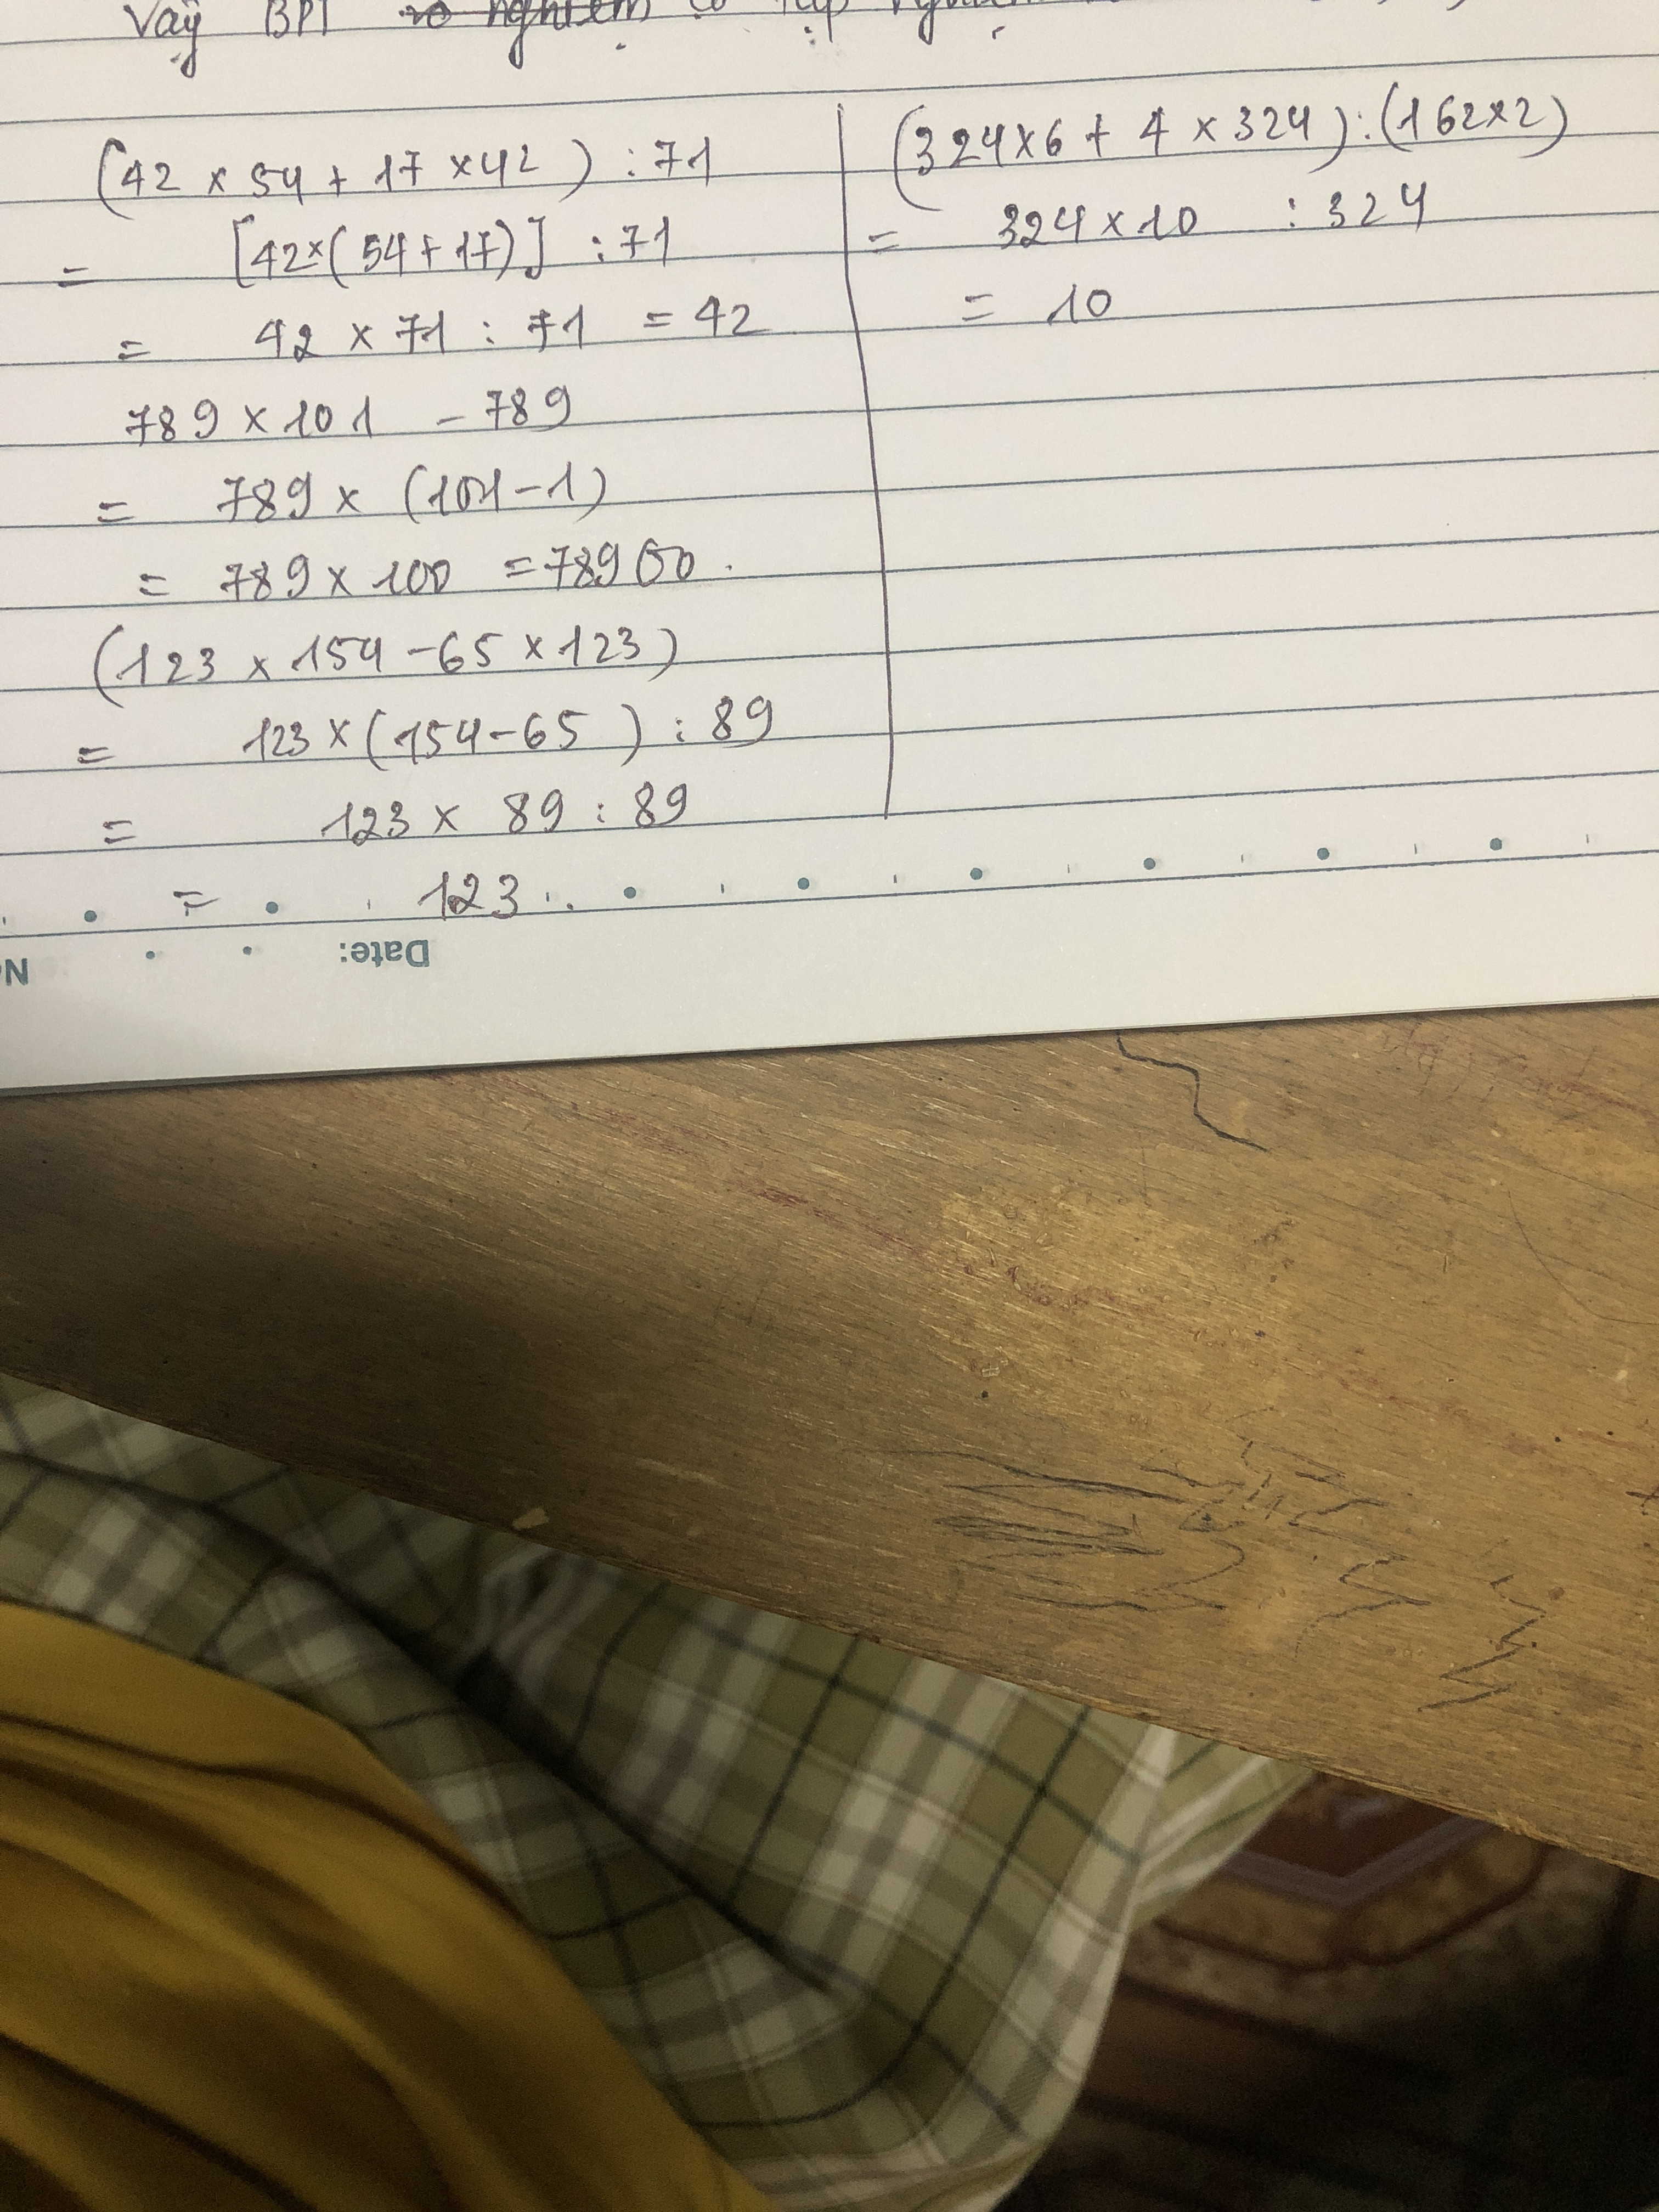 Vậy BPT vô nghiệm có tập nghiệm
(42 × 54 + 17 × 42) : 71
= [42×(54+17)] : 71
= 42 × 71 : 71 = 42
789 × 101 - 789
= 789 × (101-1)
= 789 × 100 = 78900.
(123 × 154 - 65 × 123)
= 123 × (154-65) : 89
= 123 × 89 : 89
= 123.
(324×6 + 4 × 324) : (162×2)
= 324×10 : 324
= 10
Date: